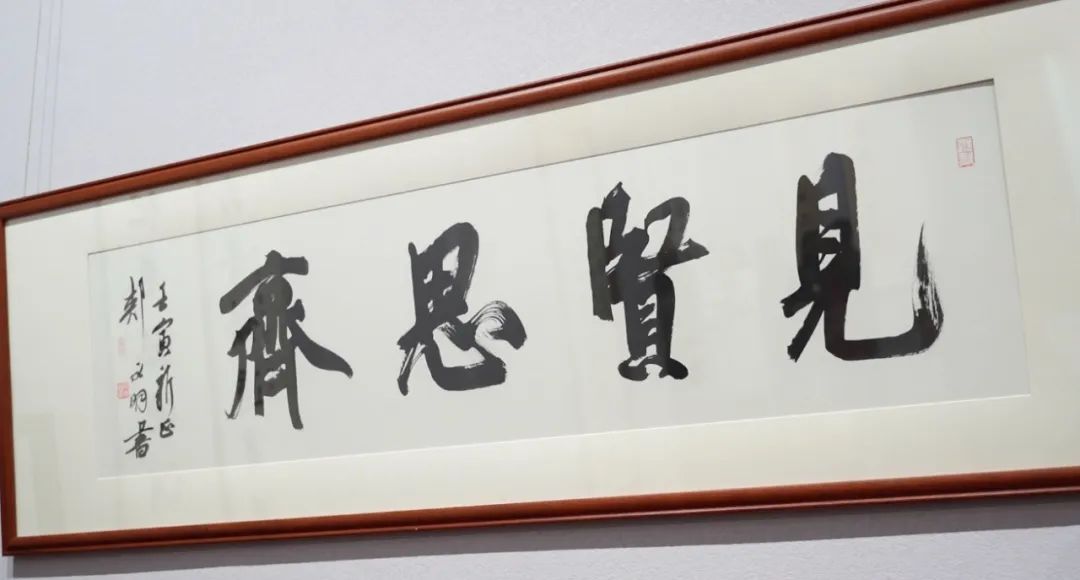 見賢思齊
壬寅新正
郏文明書